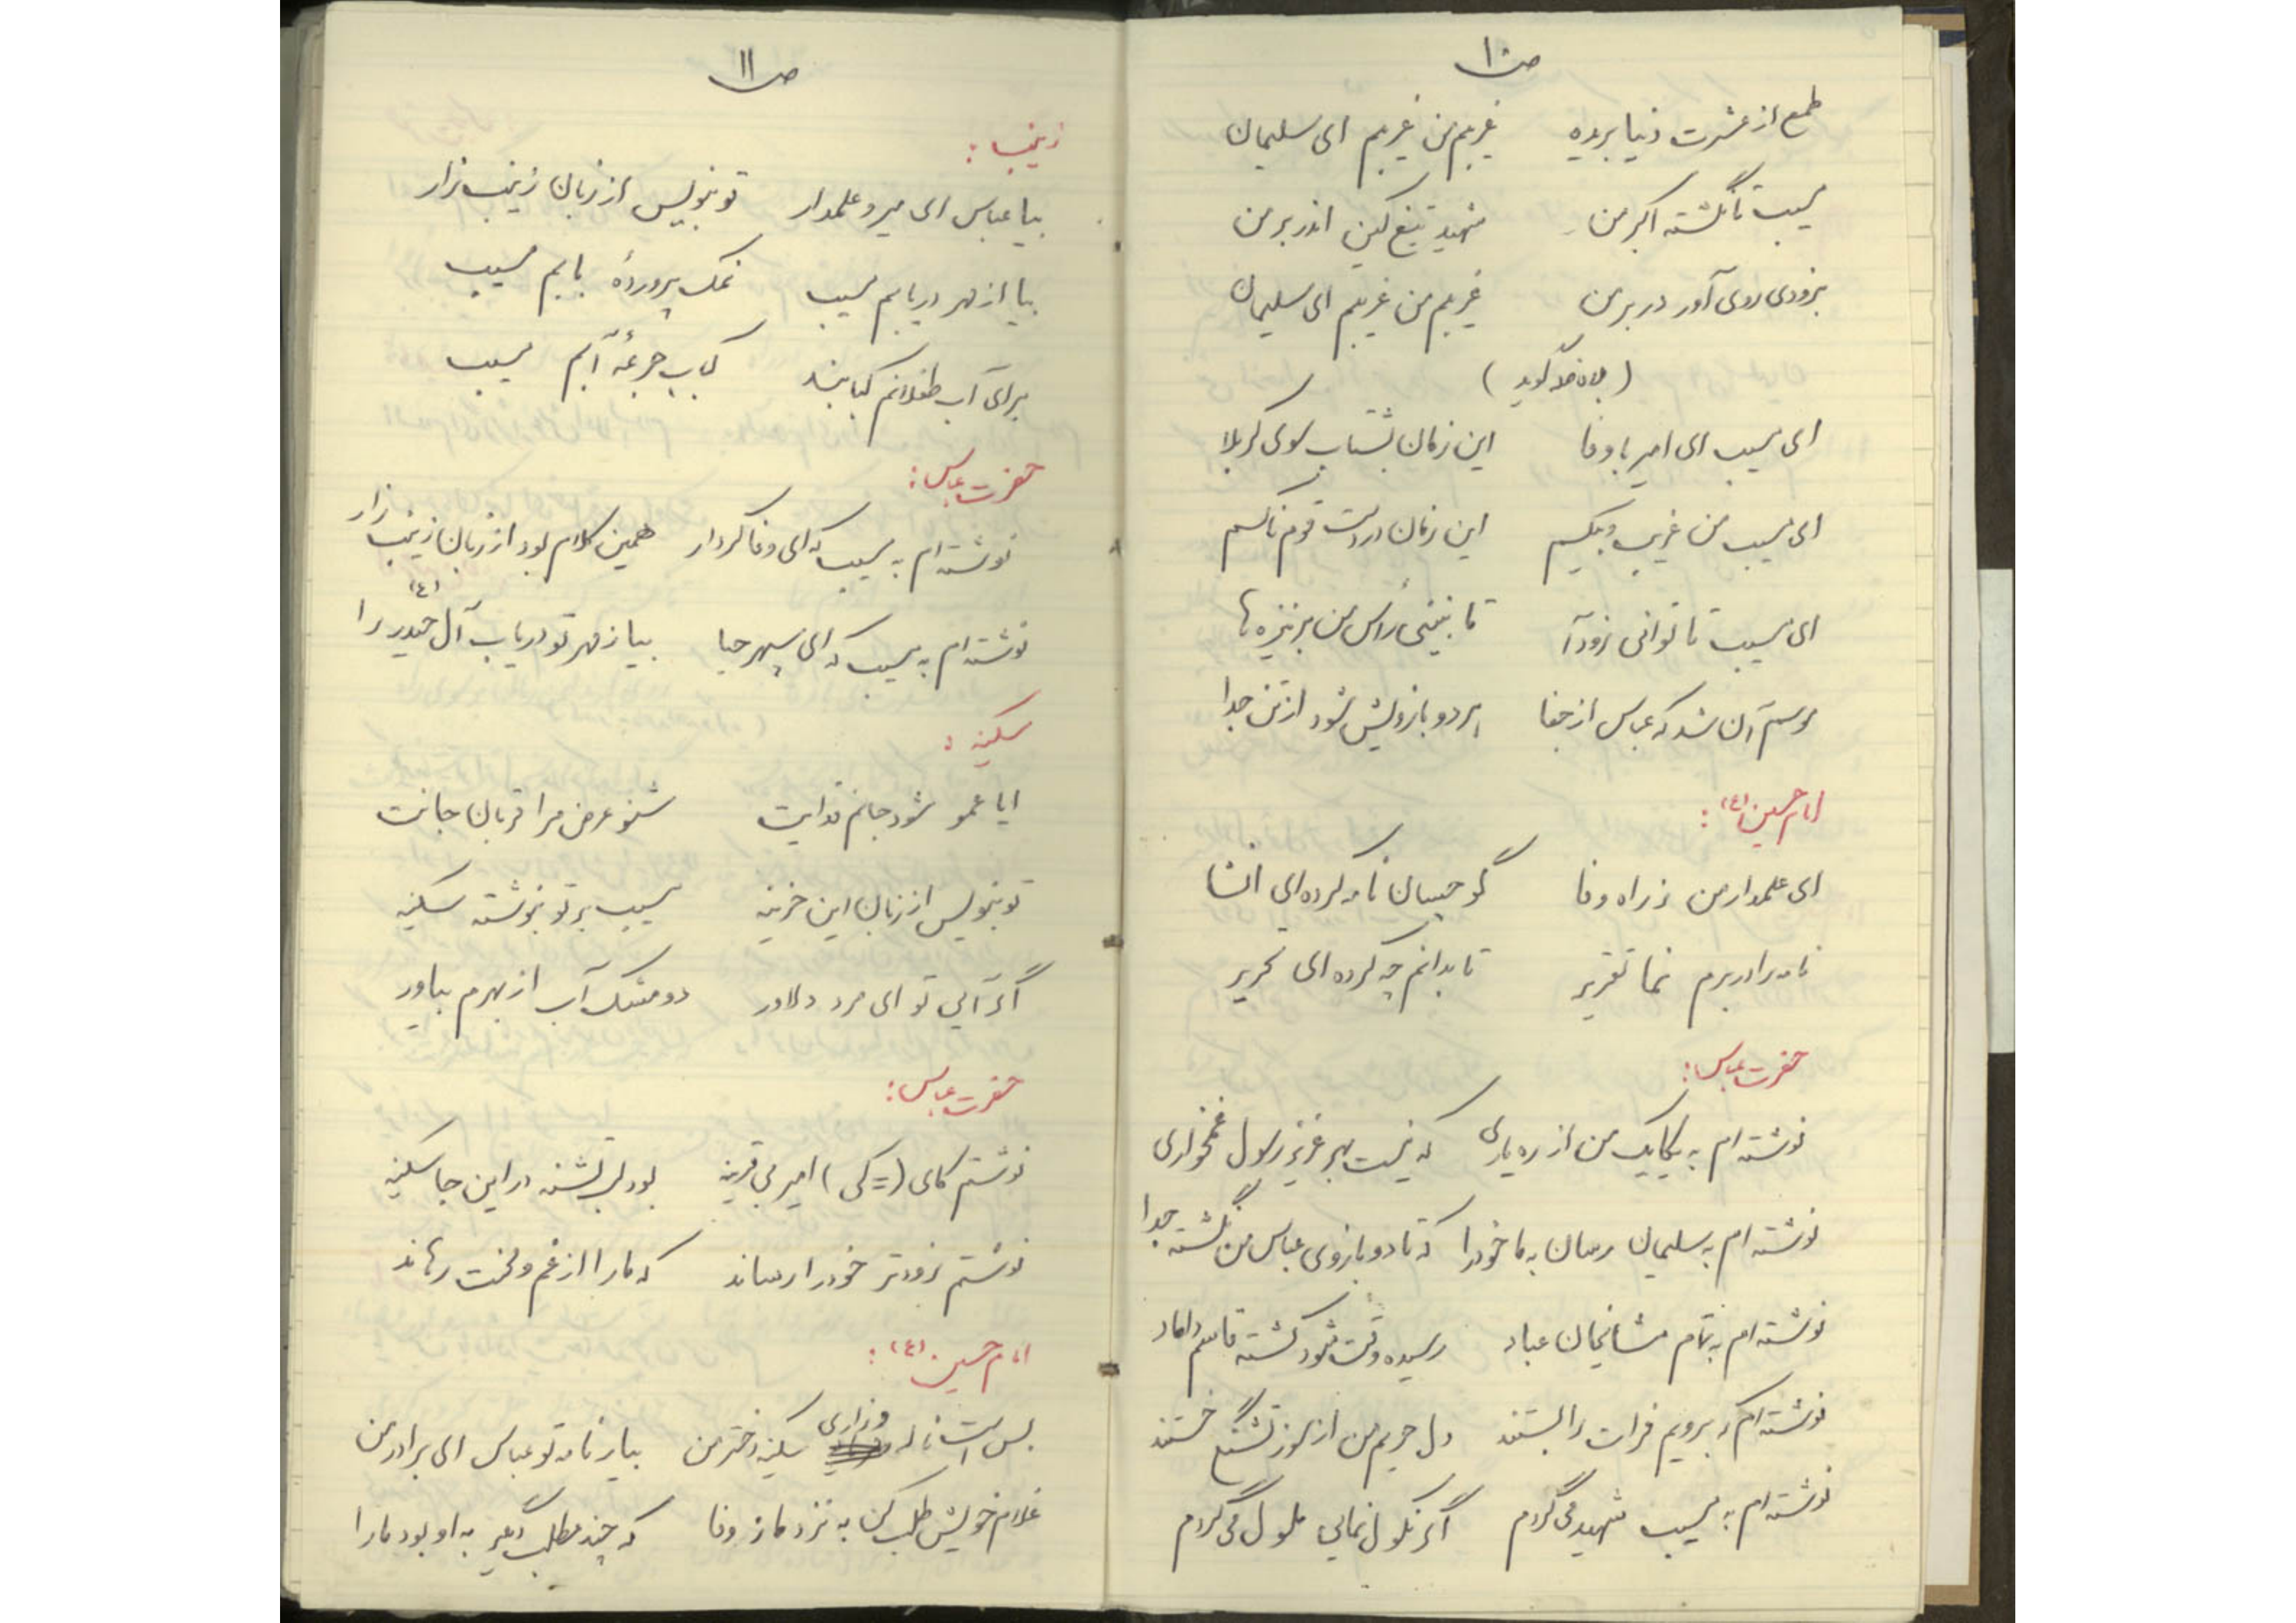 ص ۱۰
طمع از عشرت دنیا بریده غریبم من غریبم ای سلیمان
مسیب تا نگشته اکبر من شهید تیغ کین اندر بر من
بزودی روی آور در بر من غریبم من غریبم ای سلیمان
ای مسیب ای امیر با وفا این زمان بشتاب سوی کربلا
ای مسیب من غریب و بیکسم این زمان در دست قوم ناکسم
ای مسیب تا توانی زود آ تا نبینی رأس من بر نیزه ها
موسم آن شد که عباس از جفا هر دو بازویش شود از تن جدا
امام حسین (ع) :
ای علمدار من ز راه وفا گو چسان نامه کرده ای انشا
نامه برادر برم نما تقریر تا بدانم چه کرده ای تحریر
حضرت عباس :
نوشته ام به یکایک من از ره یاری که نیست بهر عزیز رسول غمخواری
نوشته ام به سلیمان رسان به ما خود را که تا دو بازوی عباس من نگشته جدا
نوشته ام به تمام مشایخان عباد رسیده وقت شود کشته قاسم داماد
نوشته ام که برویم فرات را بستند دل حریم من از سوز تشنگی خستند
نوشته ام به مسیب شهید می گردم اگر نکول نمایی ملول می گردم
ص ۱۱
زینب :
بیا عباس ای میر و علمدار تو بنویس از زبان زینب زار
بیا از مهر دریابم مسیب نمک پروردهٔ بابم مسیب
برای آب طفلانم کبابند کباب جرعهٔ آبم مسیب
حضرت عباس :
نوشته ام به مسیب که ای وفا کردار همین کلام بود از زبان زینب زار
نوشته ام به مسیب که ای سپهر حیا بیا ز مهر تو دریاب آل حیدر (ع) را
سکینه :
ایا عمو شود جانم فدایت شنو عرض مرا قربان جانت
تو بنویس از زبان این حزینه مسیب بر تو بنوشته سکینه
اگر آیی تو ای مرد دلاور دو مشک آب از بهرم بیاور
حضرت عباس :
نوشتم کای (= کی) امیر بی قرینه بود لب تشنه در این جا سکینه
نوشتم زودتر خود را رساند که ما را از غم و محنت رهاند
امام حسین (ع) :
بس است ناله و زاری سکینه دختر من بیار نامه تو عباس ای برادر من
غلام خویش طلب کن به نزد ما ز وفا که چند مطلب دیگر به او بود ما را